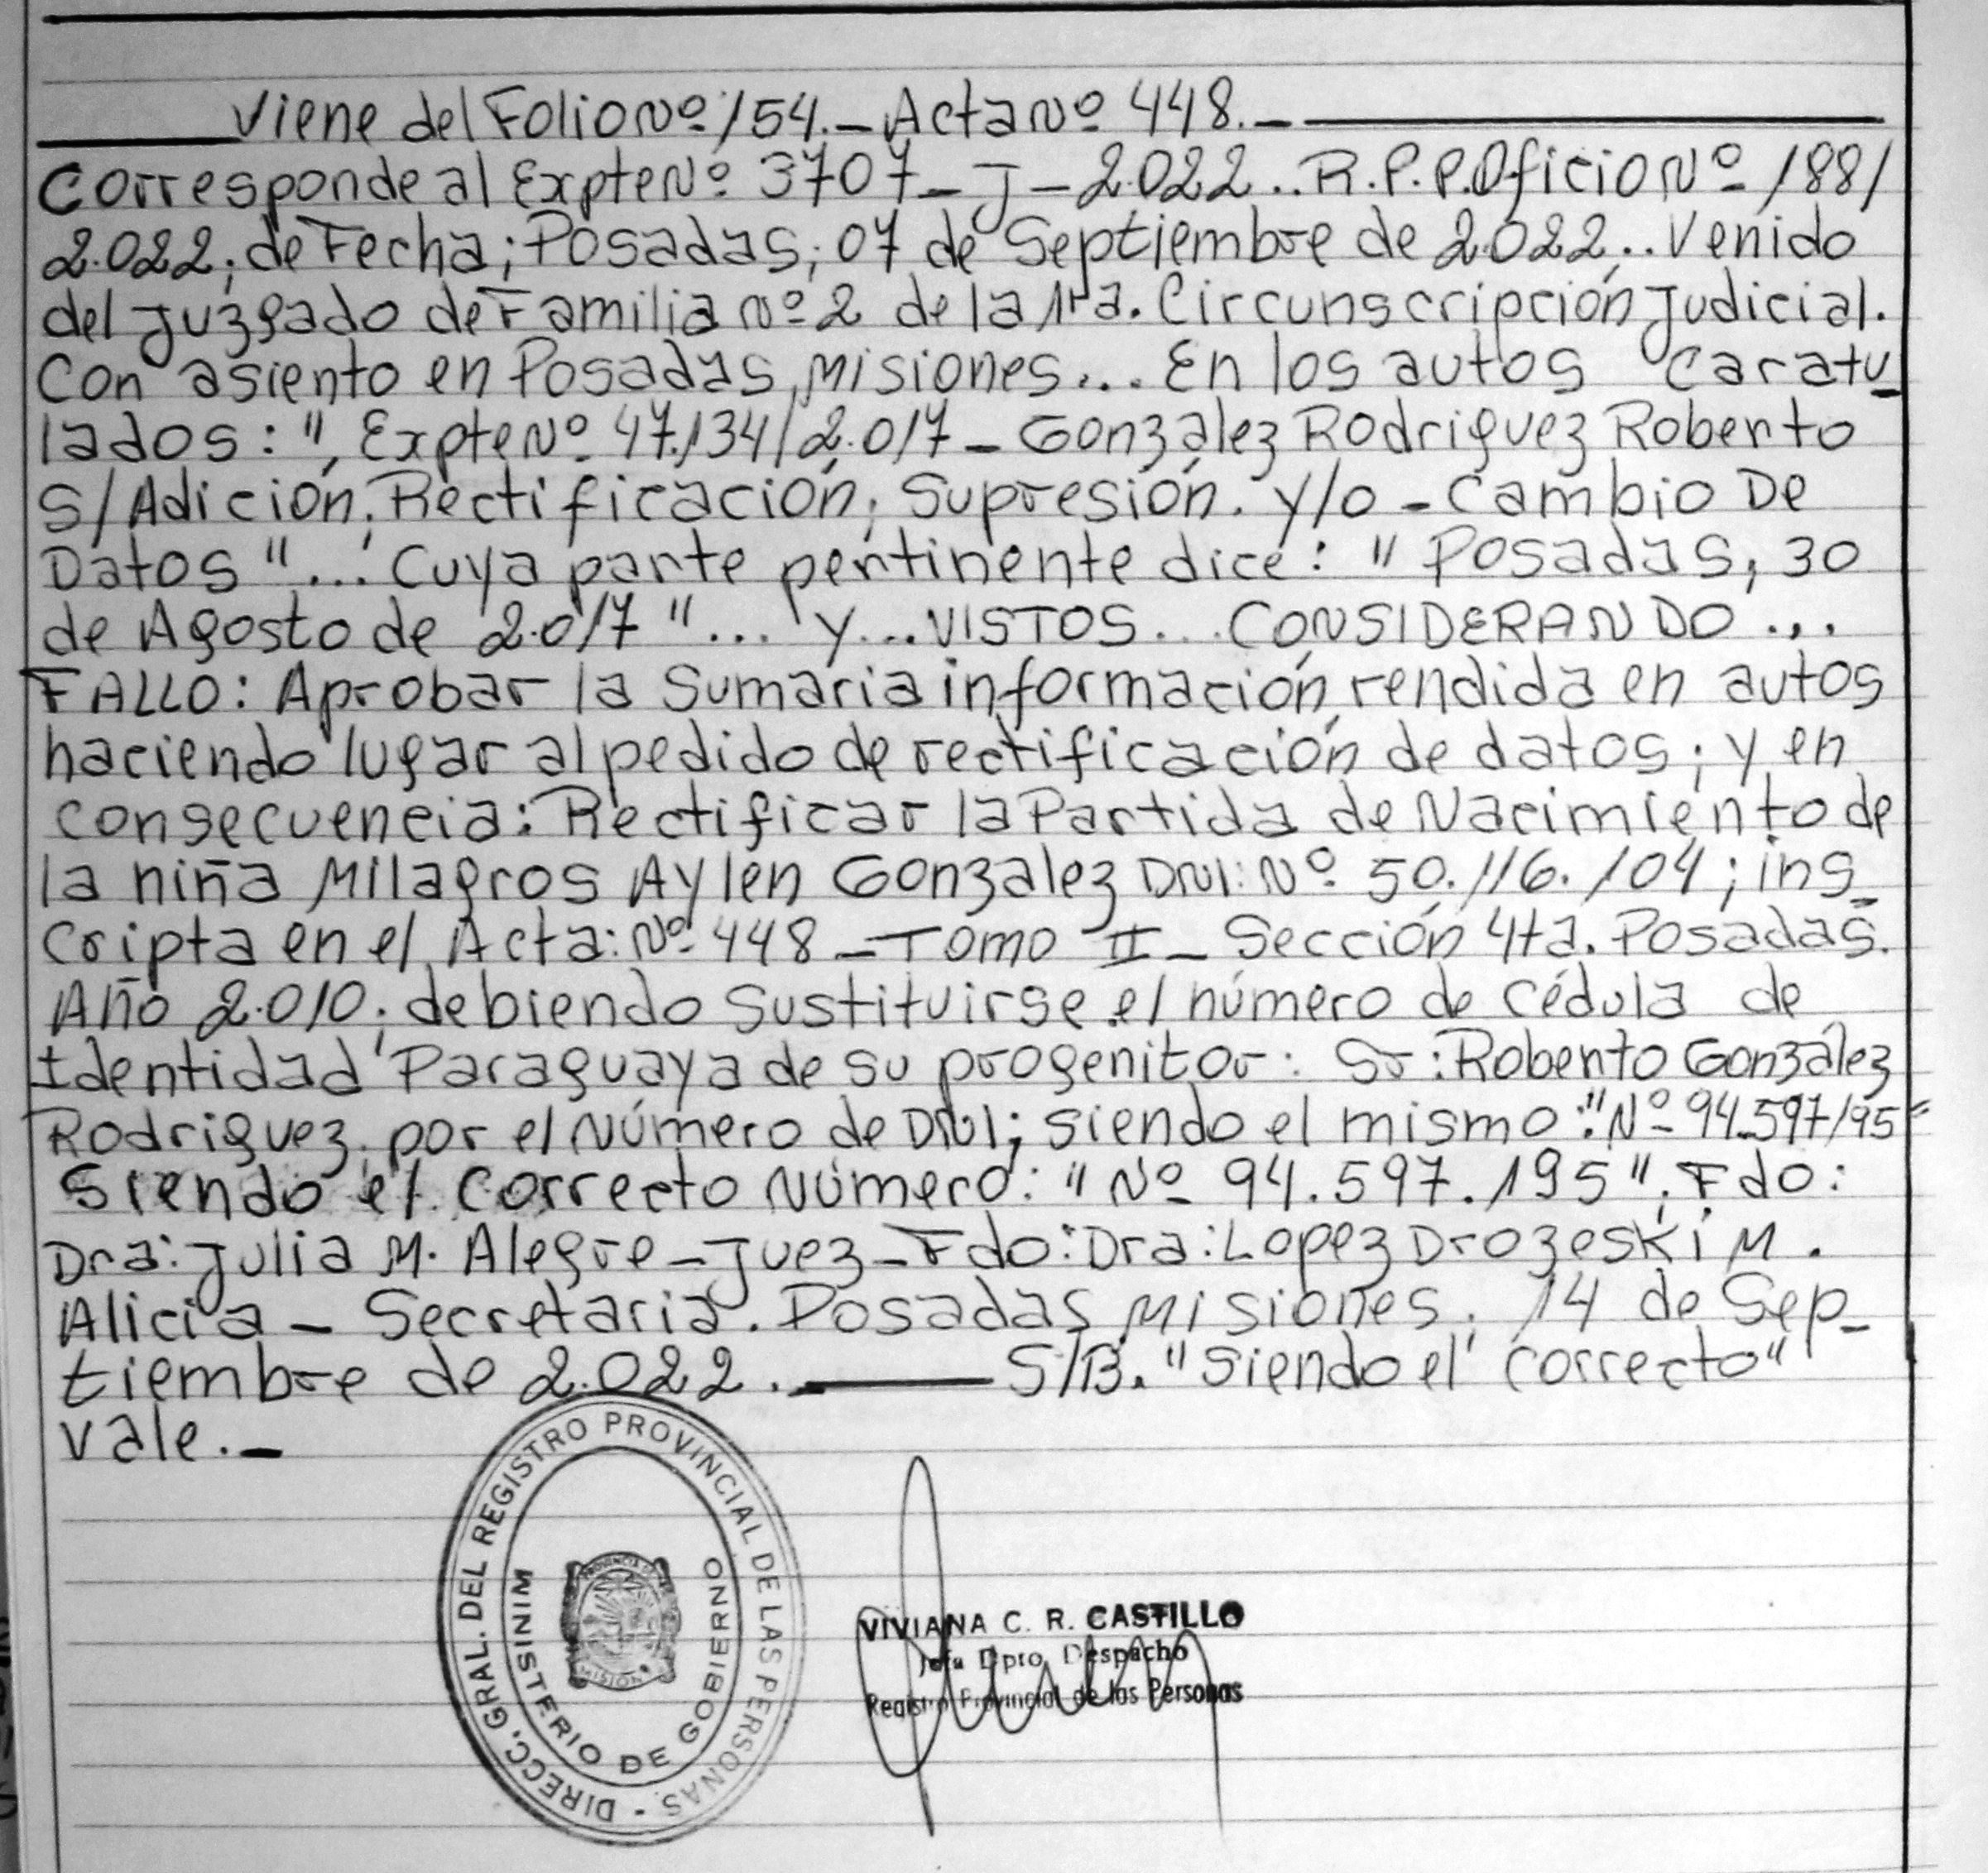 Viene del Folio Nº 154.- Acta Nº 448.-
Corresponde al Expte Nº 3707-J-2.022.. R.P.P. Oficio Nº 188/
2.022; de Fecha; Posadas; 07 de Septiembre de 2.022;.. Venido
del Juzgado de Familia Nº 2 de la 1ra. Circunscripción Judicial.
Con asiento en Posadas, Misiones... En los autos Caratu_
lados: ", Expte Nº 47.134/2.017 - González Rodriguez Roberto
S/Adición; Rectificación; Supresión. y/o - Cambio De
Datos "... Cuya parte pertinente dice: " Posadas, 30
de Agosto de 2.017 "... y...VISTOS... CONSIDERANDO...
FALLO: Aprobar la Sumaria información, rendida en autos
haciendo lugar al pedido de rectificación de datos; y en
consecuencia: Rectificar la Partida de Nacimiento de
la niña Milagros Aylen Gonzalez DNI: Nº 50.116.104; ins_
cripta en el Acta: Nº 448 - Tomo II - Sección 4ta. Posadas.
Año 2.010; debiendo Sustituirse el número de Cédula de
Identidad Paraguaya de su progenitor: Sr: Roberto González
Rodriguez, por el Número de DNI; siendo el mismo: "Nº 94.597/95"
Siendo el Correcto Número: "Nº 94.597.195", Fdo:
Dra: Julia M. Alegre - Juez - Fdo: Dra: Lopez Drozeski M.
Alicia - Secretaria. Posadas, Misiones. 14 de Sep_
tiembre de 2.022. S/B. "Siendo el correcto"
Vale.-
DIRECC. GRAL. DEL REGISTRO PROVINCIAL DE LAS PERSONAS -
MINISTERIO DE GOBIERNO
PROVINCIA DE
MISIONES
VIVIANA C. R. CASTILLO
Jefa Dpto. Despacho
Registro Provincial de las Personas